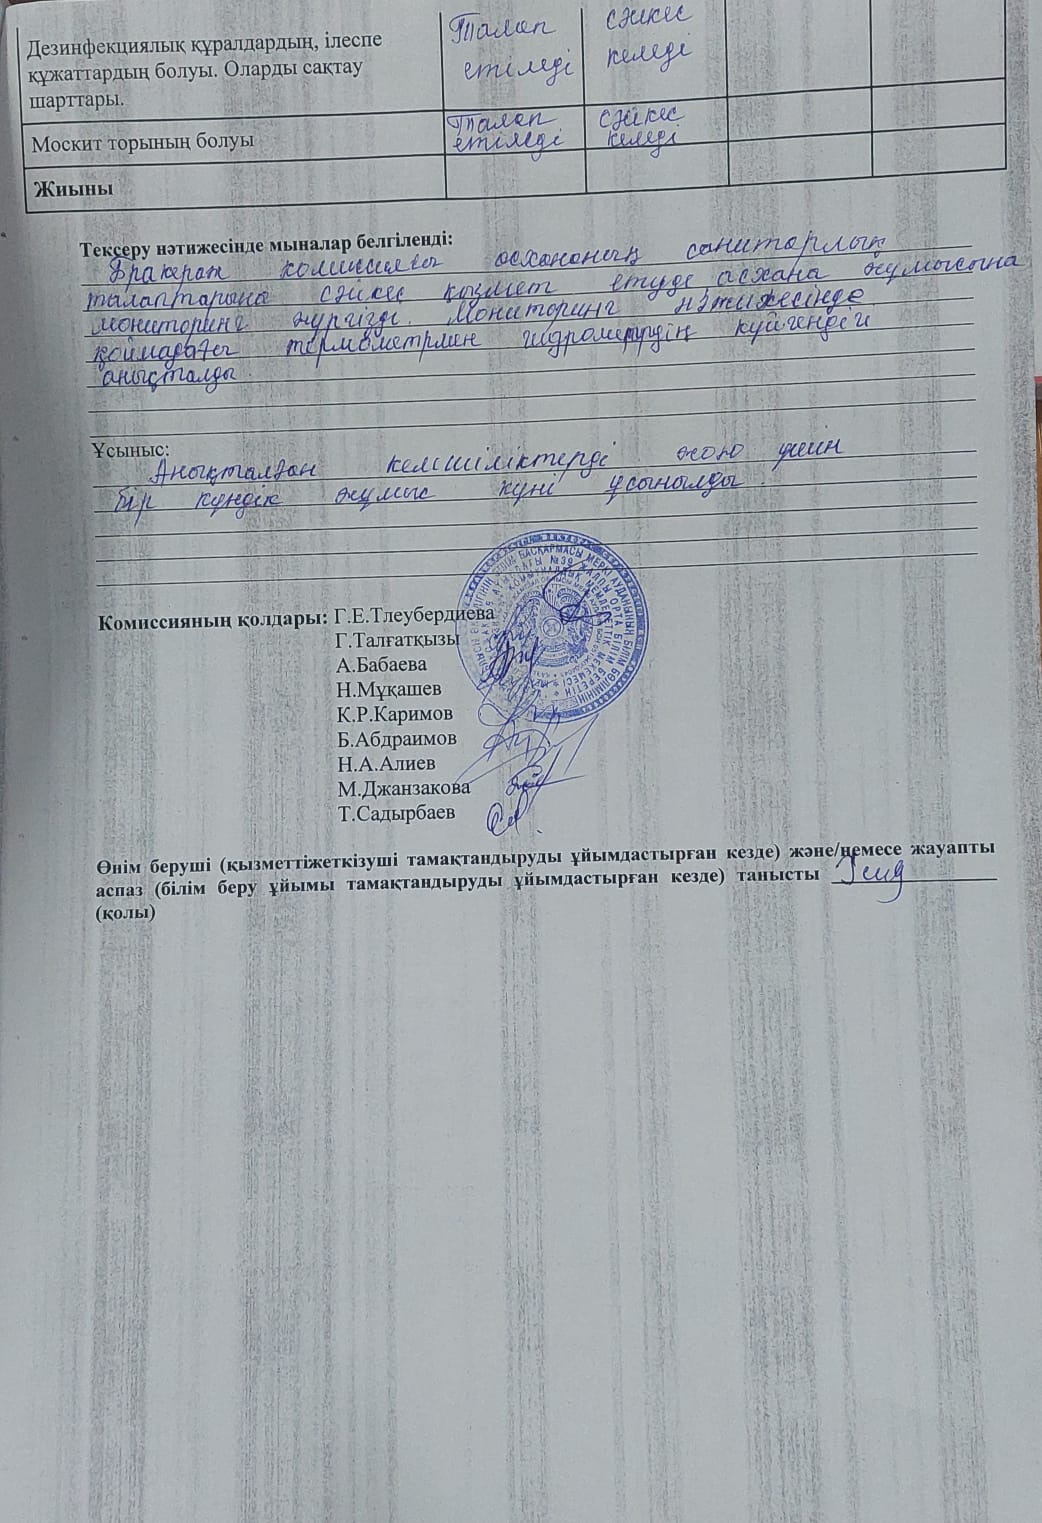 Дезинфекциялық құралдардың, ілеспе құжаттардың болуы. Оларды сақтау шарттары.
Талап етіледі
сәйкес келеді
Москит торының болуы
Талап етіледі
сәйкес келеді
Жиыны
Тексеру нәтижесінде мыналар белгіленді:
Бракераж комиссиясы асхананың санитарлық
талаптарына сәйкес қызмет етуде асхана жұмысына
мониторинг жүргізді. Мониторинг нәтижесінде
қоймадағы термометрмен гидрометрдің күйгендігі
анықталды.
Ұсыныс:
Анықталған кемшіліктерді жою үшін
бір күндік жұмыс күні ұсынылды.
Комиссияның қолдары: Г.Е.Тлеубердиева
Г.Талғатқызы
А.Бабаева
Н.Мұқашев
К.Р.Каримов
Б.Абдраимов
Н.А.Алиев
М.Джанзакова
Т.Садырбаев
Өнім беруші (қызметтіжеткізуші тамақтандыруды ұйымдастырған кезде) және/немесе жауапты
аспаз (білім беру ұйымы тамақтандыруды ұйымдастырған кезде) танысты
(қолы)